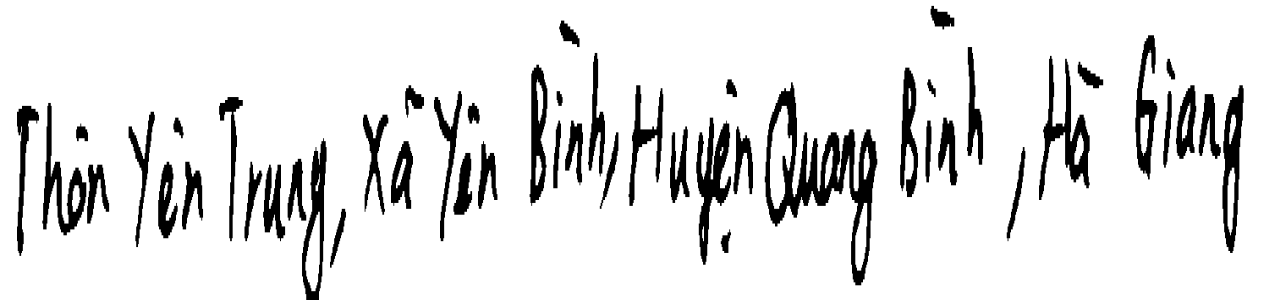 Thôn Yên Trung, Xã Yên Bình, Huyện Quang Bình, Hà Giang